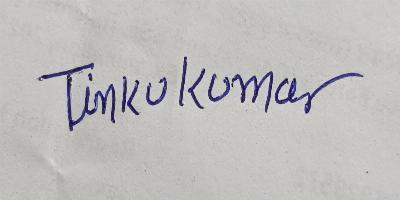 Tinku kumar